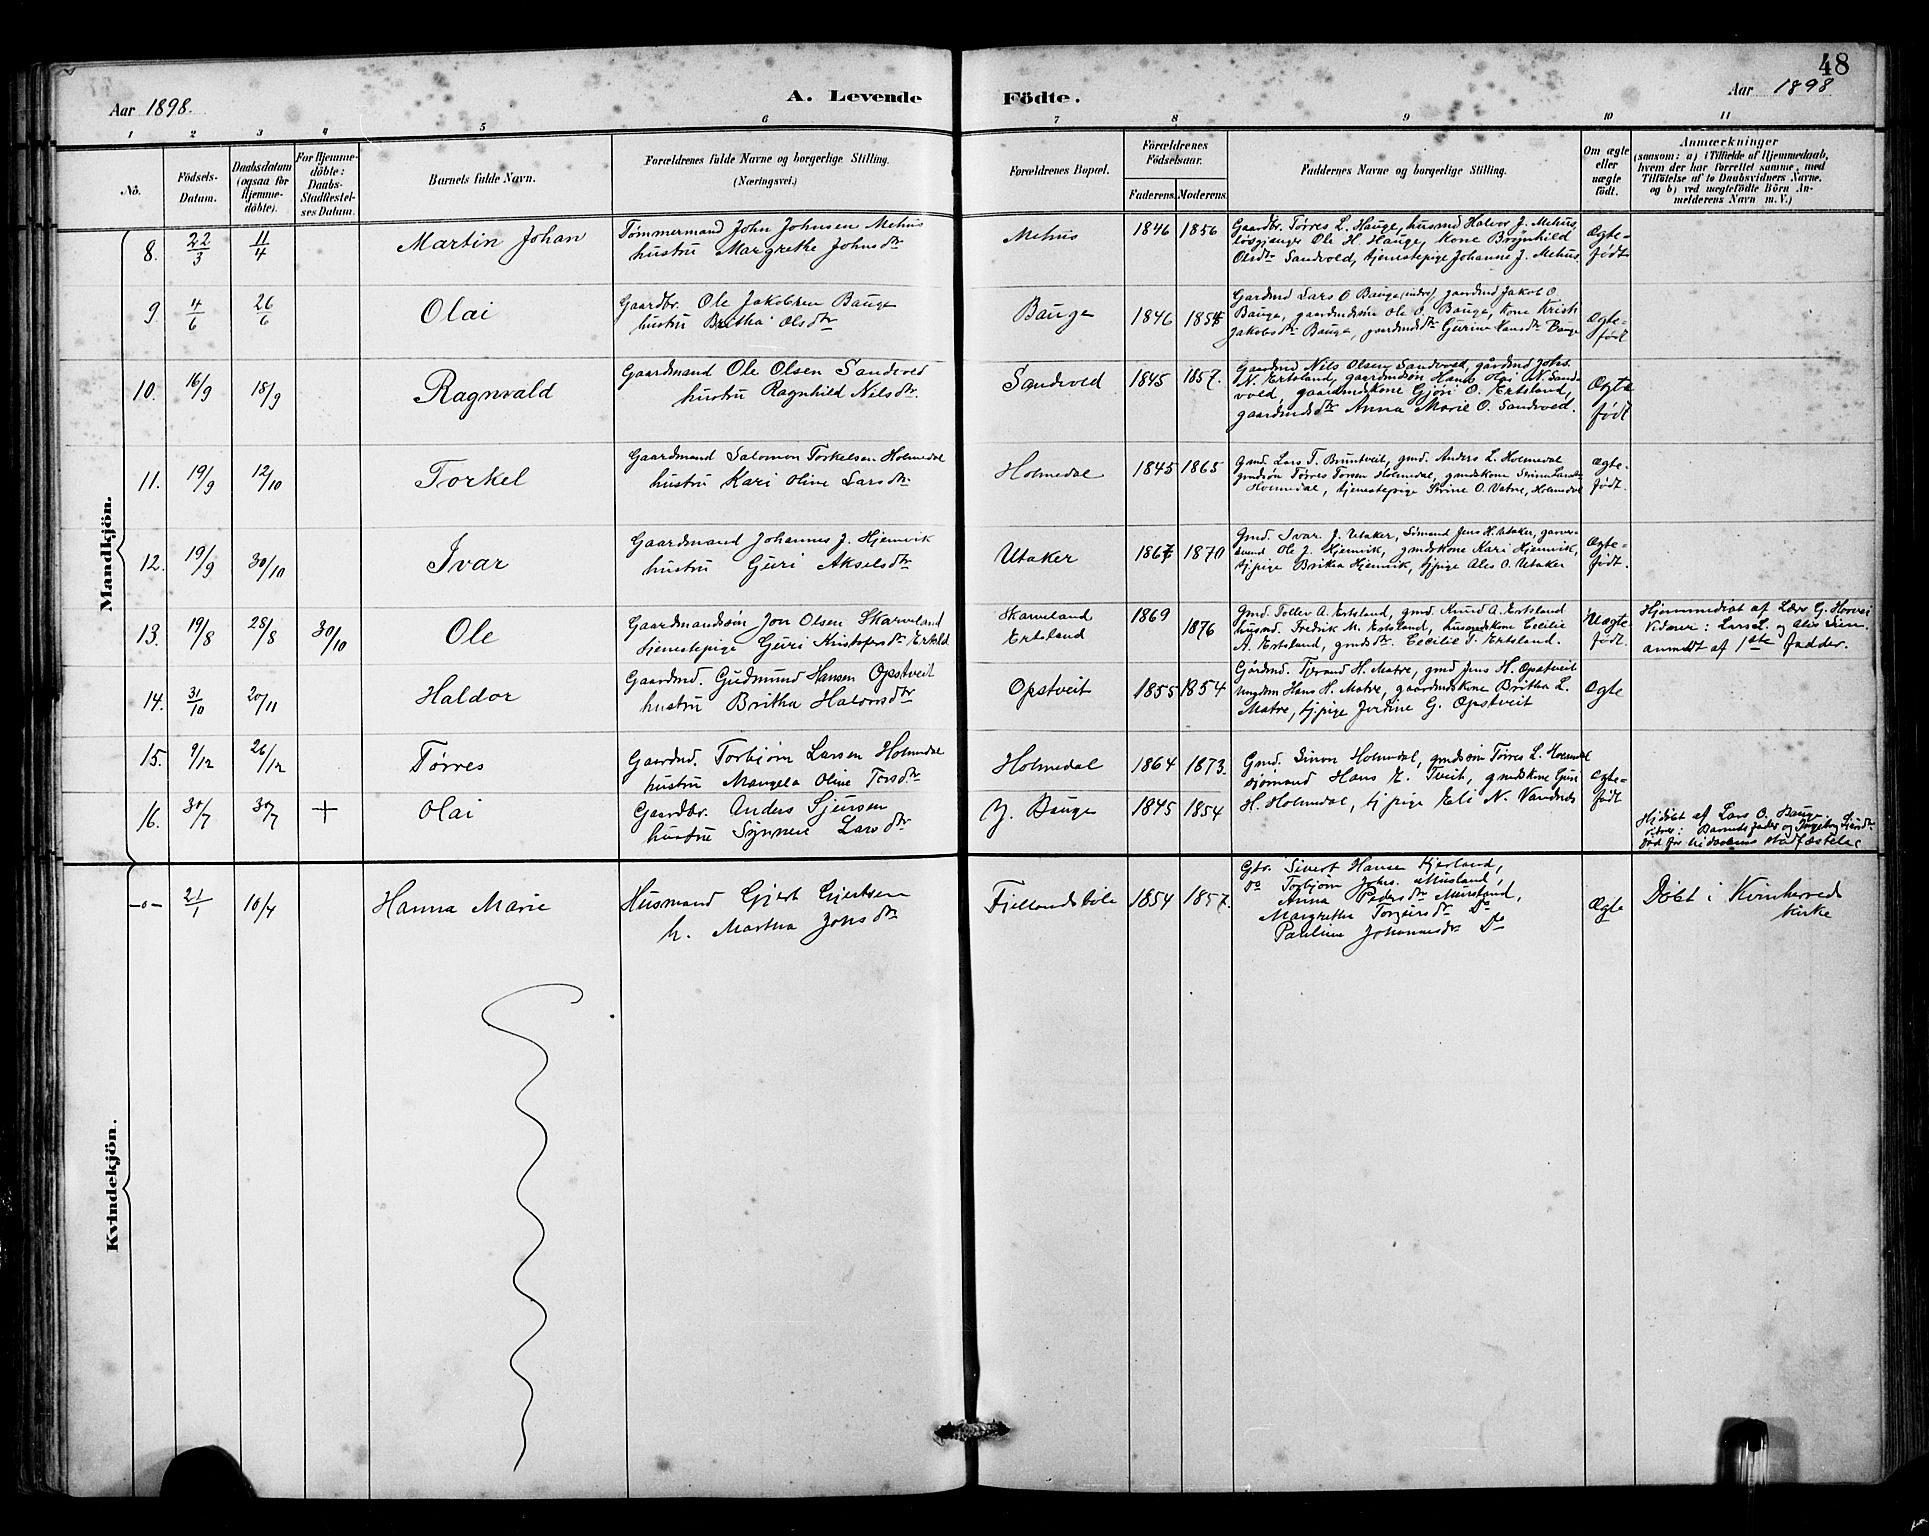 48
Aar 1898.
A. Levende Födte.
Aar 1898
1 2 3 4 5 6 7 8 9 10 11
No.
Födsels-
Datum.
Daabsdatum
(ogsaa for
Hjemme-
döbte).
For Hjemme-
döbte:
Daabs-
Stadfæstel-
ses Datum.
Barnets fulde Navn.
Forældrenes fulde Navne og borgerlige Stilling.
(Næringsvei.)
Forældrenes Bopæl.
Forældrenes
Födselsaar.
Faderens. Moderens.
Faddernes Navne og borgerlige Stilling.
Om ægte
eller
uægte
födt.
Anmærkninger
(saasom: a) i Tilfælde af Hjemmedaab,
hvem der har forrettet samme, med
Tilföielse af to Daabsvidners Navne,
og b) ved uægtefödte Börn An-
melderens Navn m. V.)
Mandkjön.
8. 22/3 11/4 Martin Johan
Tømmermand John Johnsen Mehus
hustru Margrethe Johnsdtr
Mehus 1846 1856
Gaardbr. Tørres L. Hauge, husmd Halvor J. Mehus,
løsgjænger Ole H. Hauge, kone Brynhild
Olsdtr Sandvold, tjenestepige Johanne J. Mehus.
Ægte-
født
9. 4/6 26/6 Olai
Gaardbr. Ole Jakobsen Bauge
hustru Britha Olsdtr
Bauge 1846 1854
Gardmd Lars O Bauge (indre), gaardmd Jakob O.
Bauge, gaardmdssøn Ole O. Bauge, kone Kristi
Jakobsdtr Bauge, gaardmdsdtr Gurine Hansdtr Bauge
Ægte-
født
10. 16/9 18/9 Ragnvald
Gaardmand Ole Olsen Sandved
hustru Ragnhild Nilsdtr.
Sandved 1845 1857.
Gaardmd Nils Olsen Sandved, gårdmd Johs.
N. Ertsland, gaardmdsøn Hans Olai N. Sand-
vold, gaardmdskone Gjøri O. Ertsland,
gaardmdsdtr Anna Marie O. Sandved.
Ægte
født
11. 19/9 12/10 Torkel
Gaardmand Salomon Torkelsen Holmedal
hustru Kari Oline Larsdtr.
Holmedal 1845 1865
Gmd. Lars T. Bruntveit, gmd. Anders L. Holmedal
gmdsøn Tørres Torsen Holmedal, gmdskone
Holmedal, tjenestepige Serine O. Vatne, Holmedal
Ægte-
født.
12. 19/9 30/10 Ivar
Gaardmand Johannes J. Hjemvik
hustru Guri Akselsdtr
Utaker 1867 1870
Gmd. Ivar J. Utaker, Sømand Jens H. Utaker,
Ole J. Hjemvik, gmdskone Kari Hjemvik,
tjpige Britha Hjemvik, tjpige Ales O. Utaker
Ægte-
født.
13. 19/8 28/8 30/10 Ole
Gaardmandssøn Jon Olsen Skarveland
tjenestepige Guri Kristofersdtr Ertsld
Skarveland
Ertsland
1869 1876
Gmd. Tollev A. Ertsland, gmd. Knud A. Ertsland
husmd. Fredrik M. Ertsland, husmdskone Cecilie
A. Ertsland, gmdsdtr. Cecilie T. Ertsland.
Uægte
født.
Hjemmedøbt af Lærer G.
Vidner: Lars L. og
anmeldt af 1ste fadder.
14. 31/10 20/11 Haldor
Gaardmd. Gudmund Hansen Opstveit
hustru Britha Halvorsdtr
Opstveit 1855 1854
Gårdmd. H. Matre, gmd Jens H. Opstveit
ungdom Hans H. Matre, gaardmdskone Britha L.
Matre, tj.pige Jertine G. Opstveit
Ægte
15. 9/12 26/12 Tørres
Gaardmd. Torbjørn Larsen Holmedal
hustru Mangela Oline Torsdtr
Holmedal 1864 1873.
Gmd. Simon Holmedal, gmdssøn Tørres L. Holmedal
sjømand Hans E. Tveit, gmdskone Guri
H. Holmedal, tjpige Eli N.
Ægte-
født
16. 30/7 30/7 + Olai
Gaardbr. Anders Sjursen
hustru Synneve Larsdtr
Y. Bauge 1845 1854
Hjdøbt af Lars O. Bauge
vidner: Barnets fader og Ingeborg
Død før
Kvindekjön.
-0- 21/1 10/4 Hanna Marie
Husmand Gjert Gjertsen
h. Martha Jonsdtr
Fjellandsbøle 1854 1857.
Gbr. Sivert Hansen Fjerland,
Do Torbjørn Johs. Musland,
Anna Pedersdtr Musland,
Margrethe Torgeirsdtr Do
Pauline Johannesdtr Do
Ægte
Døbt i Kvinherred
kirke